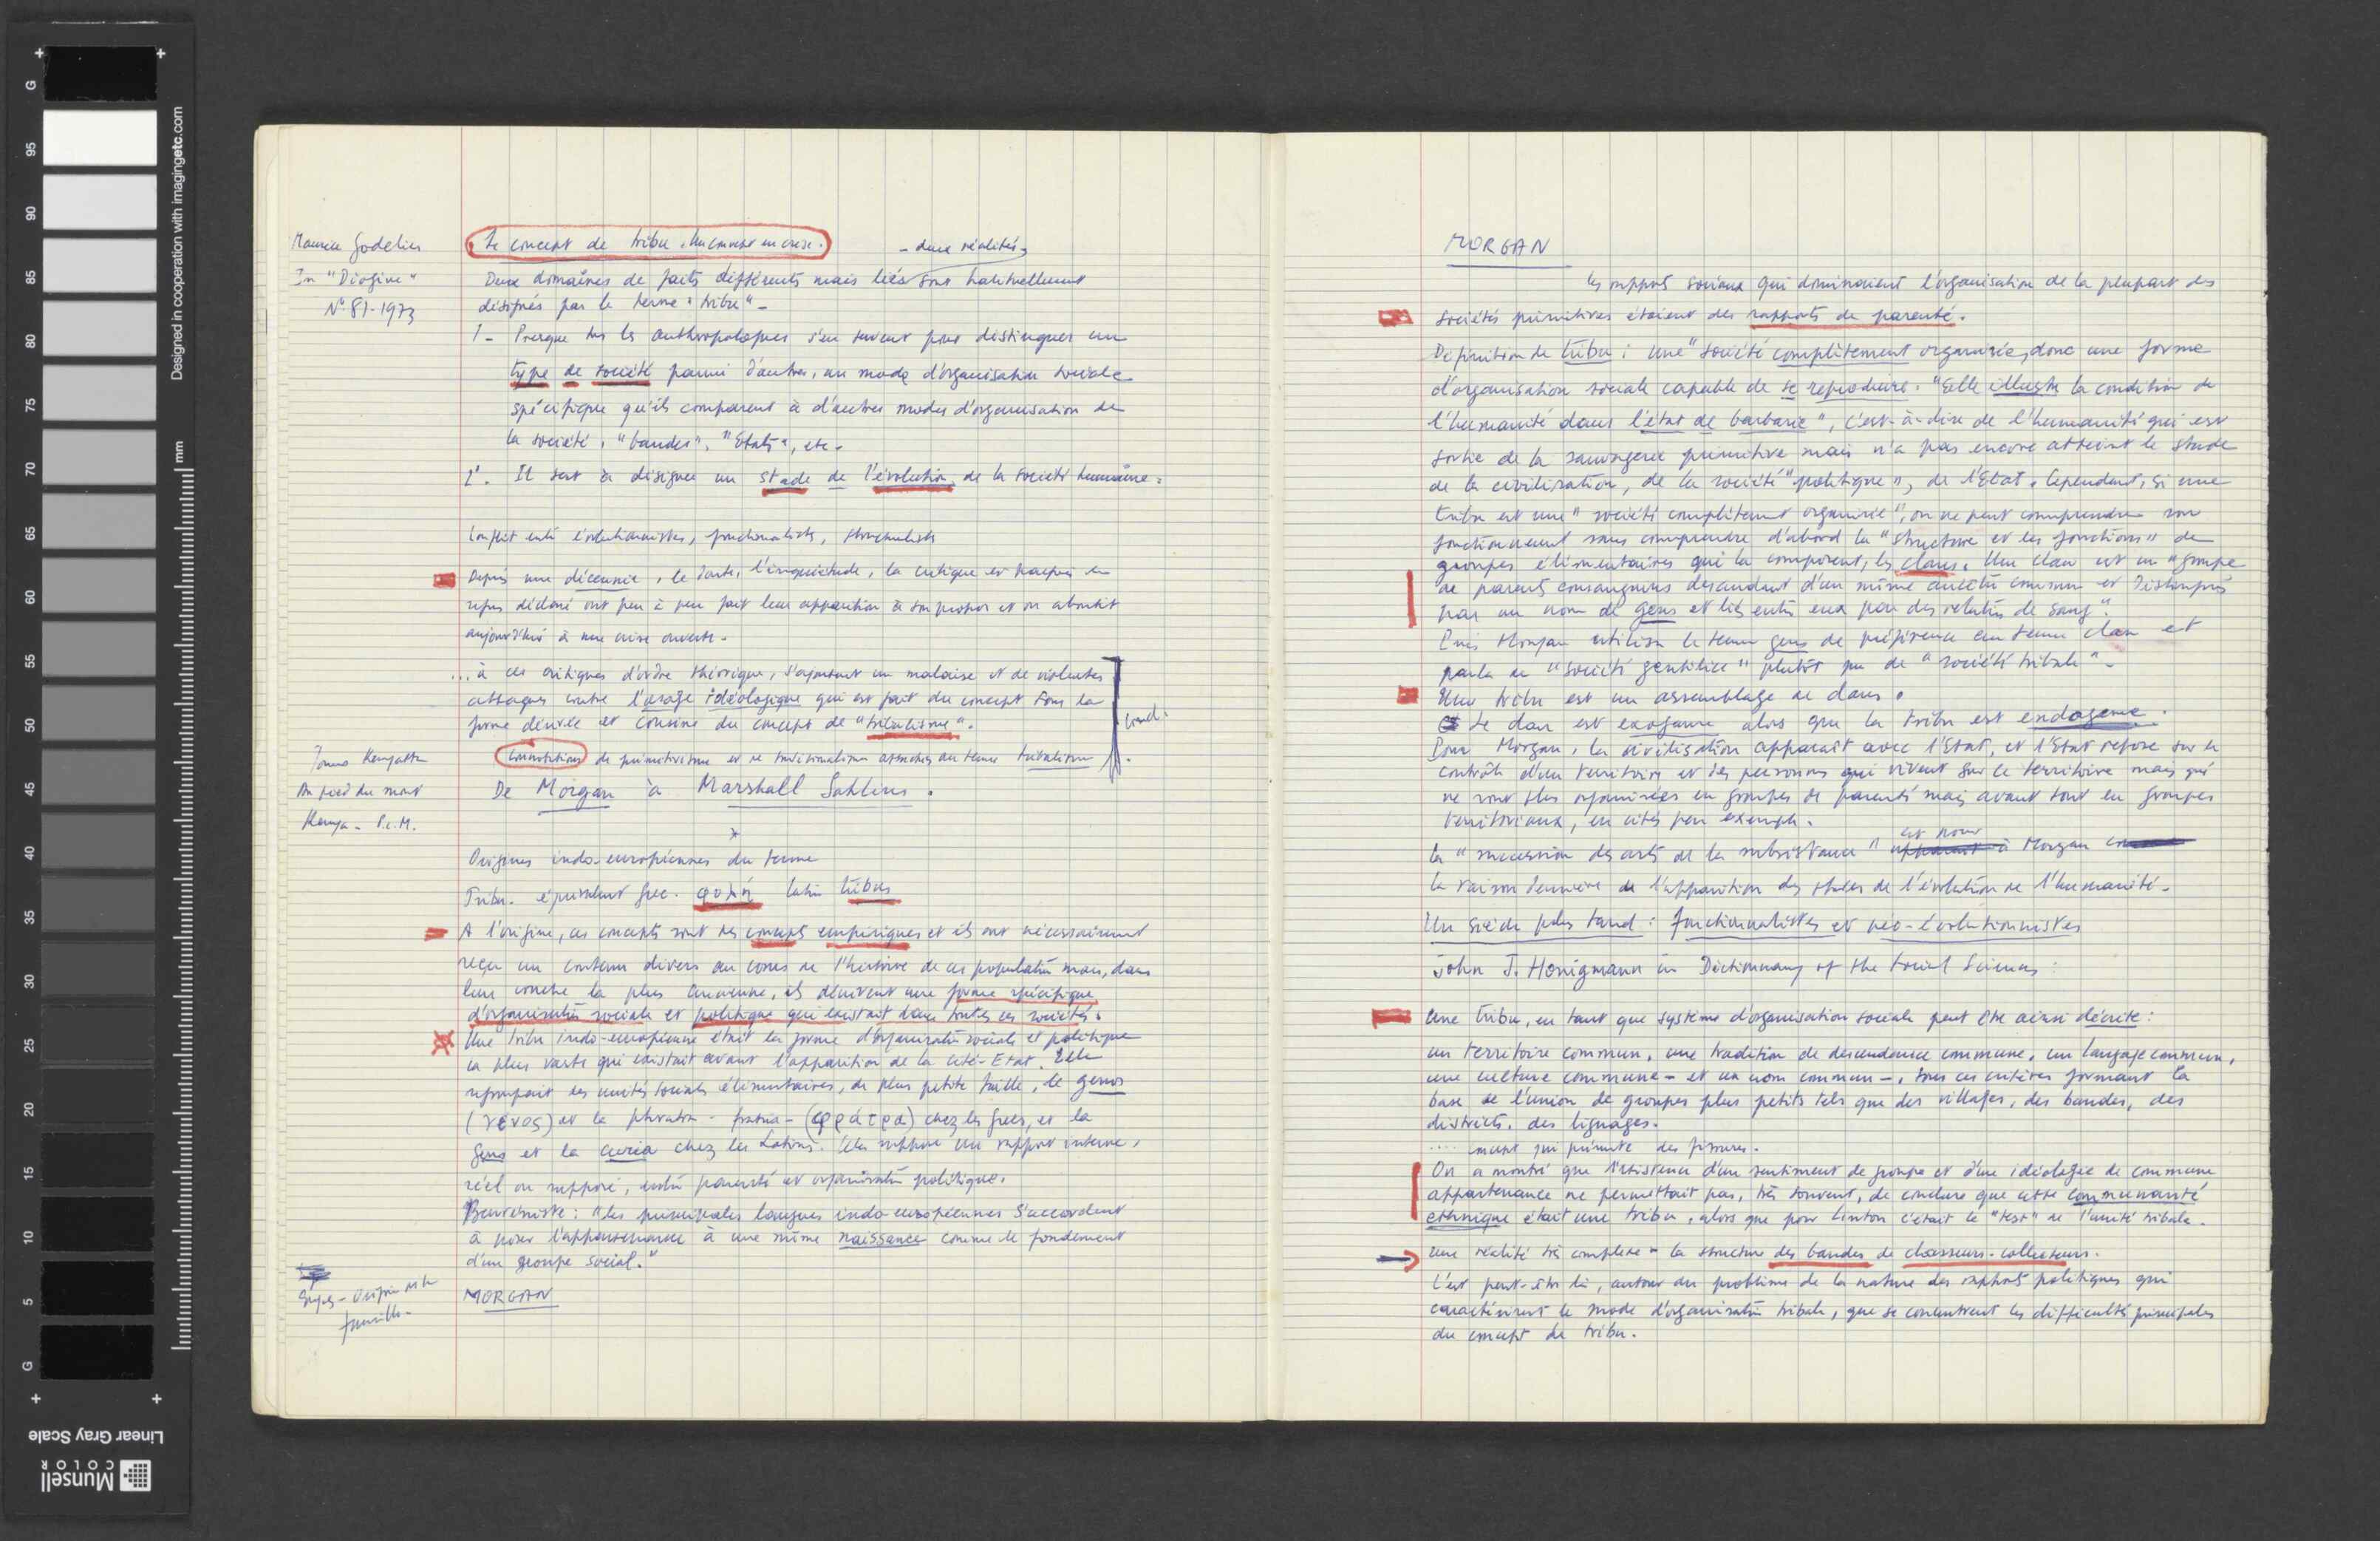 Maurice Godelier
In "Diogène"
N° 81-1973
Le concept de tribu. Un concept en crise.
- deux réalités
Deux domaines de faits différents mais liés sont habituellement
désignés par le terme "tribu" -
1 - Presque tous les anthropologues s'en servent pour distinguer un
type de société parmi d'autres, un mode d'organisation sociale
spécifique qu'ils comparent à d'autres modes d'organisation de
la société, "bandes", "Etats", etc.
2°. Il sert à désigner un stade de l'évolution de la société humaine.
Conflit entre évolutionnistes, fonctionnalistes, structuralistes
Depuis une décennie, le doute, l'inquiétude, la critique et parfois le
refus déclaré ont peu à peu fait leur apparition à son propos et on aboutit
aujourd'hui à une crise ouverte.
... à ces critiques d'ordre théorique, s'ajoutent un malaise et de violentes
attaques contre l'usage idéologique qui est fait du concept sous la
forme dérivée et cousine du concept de "tribalisme".
Connotations de primitivisme et de traditionalisme attachées au terme tribalisme
Jomo Kenyatta
Au pied du mont
Kenya - P.c.M.
De Morgan à Marshall Sahlins.
*
Origines indo-européennes du terme
Tribu. équivalent grec. φυλή latin tribus
A l'origine, ces concepts sont des concepts empiriques et ils ont nécessairement
reçu un contenu divers au cours de l'histoire de ces populations mais, dans
leur couche la plus ancienne, ils décrivent une forme spécifique
d'organisation sociale et politique qui existait dans toutes ces sociétés.
Une tribu indo-européenne était la forme d'organisation sociale et politique
la plus vaste qui existait avant l'apparition de la cité-Etat. Elle
regroupait des unités sociales élémentaires, de plus petite taille, le genos
(γενος) et la phratrie - fratria - (φράτρα) chez les grecs, et la
gens et la curia chez les Latins. Cela suppose un rapport interne,
réel ou supposé, entre parenté et organisation politique.
Benveniste: "les principales langues indo-européennes s'accordent
à poser l'appartenance à une même naissance comme le fondement
d'un groupe social."
Engels - Origine de la
famille -
MORGAN
MORGAN
les rapports sociaux qui dominaient l'organisation de la plupart des
sociétés primitives étaient des rapports de parenté.
Définition de tribu : une "société complètement organisée, donc une forme
d'organisation sociale capable de se reproduire. "Elle illustre la condition de
l'humanité dans l'état de barbarie", c'est-à-dire de l'humanité qui est
sortie de la sauvagerie primitive mais n'a pas encore atteint le stade
de la civilisation, de la société "politique", de l'Etat. Cependant, si une
tribu est une "société complètement organisée", on ne peut comprendre son
fonctionnement sans comprendre d'abord la "structure et les fonctions" de
groupes élémentaires qui la composent, les clans. Un clan est un "groupe
de parents consanguins descendant d'un même ancêtre commun et distingués
par un nom de gens et liés entre eux par des relations de sang".
Puis Morgan utilisa le terme gens de préférence au terme clan et
parla de "société gentilice" plutôt que de "société tribale" -
Une tribu est un assemblage de clans.
Le clan est exogame alors que la tribu est endogame.
Pour Morgan, la civilisation apparaît avec l'Etat, et l'Etat repose sur le
contrôle d'un territoire et des personnes qui vivent sur ce territoire mais qui
ne sont plus organisées en groupes de parenté mais avant tout en groupes
territoriaux, en cités par exemple.
la "succession des arts de la subsistance" est pour Morgan
la raison dernière de l'apparition des stades de l'évolution de l'humanité -
Un siècle plus tard : fonctionnalistes et néo-évolutionnistes
John J. Honigmann in Dictionnary of the Social Sciences :
Une tribu, en tant que système d'organisation sociale peut être ainsi décrite :
un territoire commun, une tradition de descendance commune, un langage commun,
une culture commune - et un nom commun -, tous ces critères formant la
base de l'union de groupes plus petits tels que des villages, des bandes, des
districts, des lignages.
On a montré que l'existence d'un sentiment de groupe et d'une idéologie de commune
appartenance ne permettait pas, très souvent, de conclure que cette communauté
ethnique était une tribu, alors que pour Linton c'était le "test" de l'unité tribale.
une réalité très complexe - la structure des bandes de chasseurs-collecteurs.
C'est peut-être là, autour du problème de la nature des rapports politiques qui
caractérisent le mode d'organisation tribale, que se concentrent les difficultés principales
du concept de tribu.
Designed in cooperation with imagingetc.com
mm
G
95
90
85
80
75
70
65
60
55
50
45
40
35
30
25
20
15
10
5
G
Linear Gray Scale
Munsell
COLOR